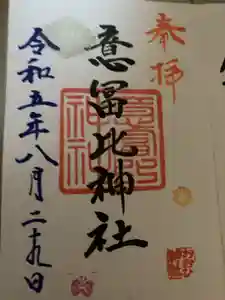 奉拝
意冨比神社
令和五年八月二十九日